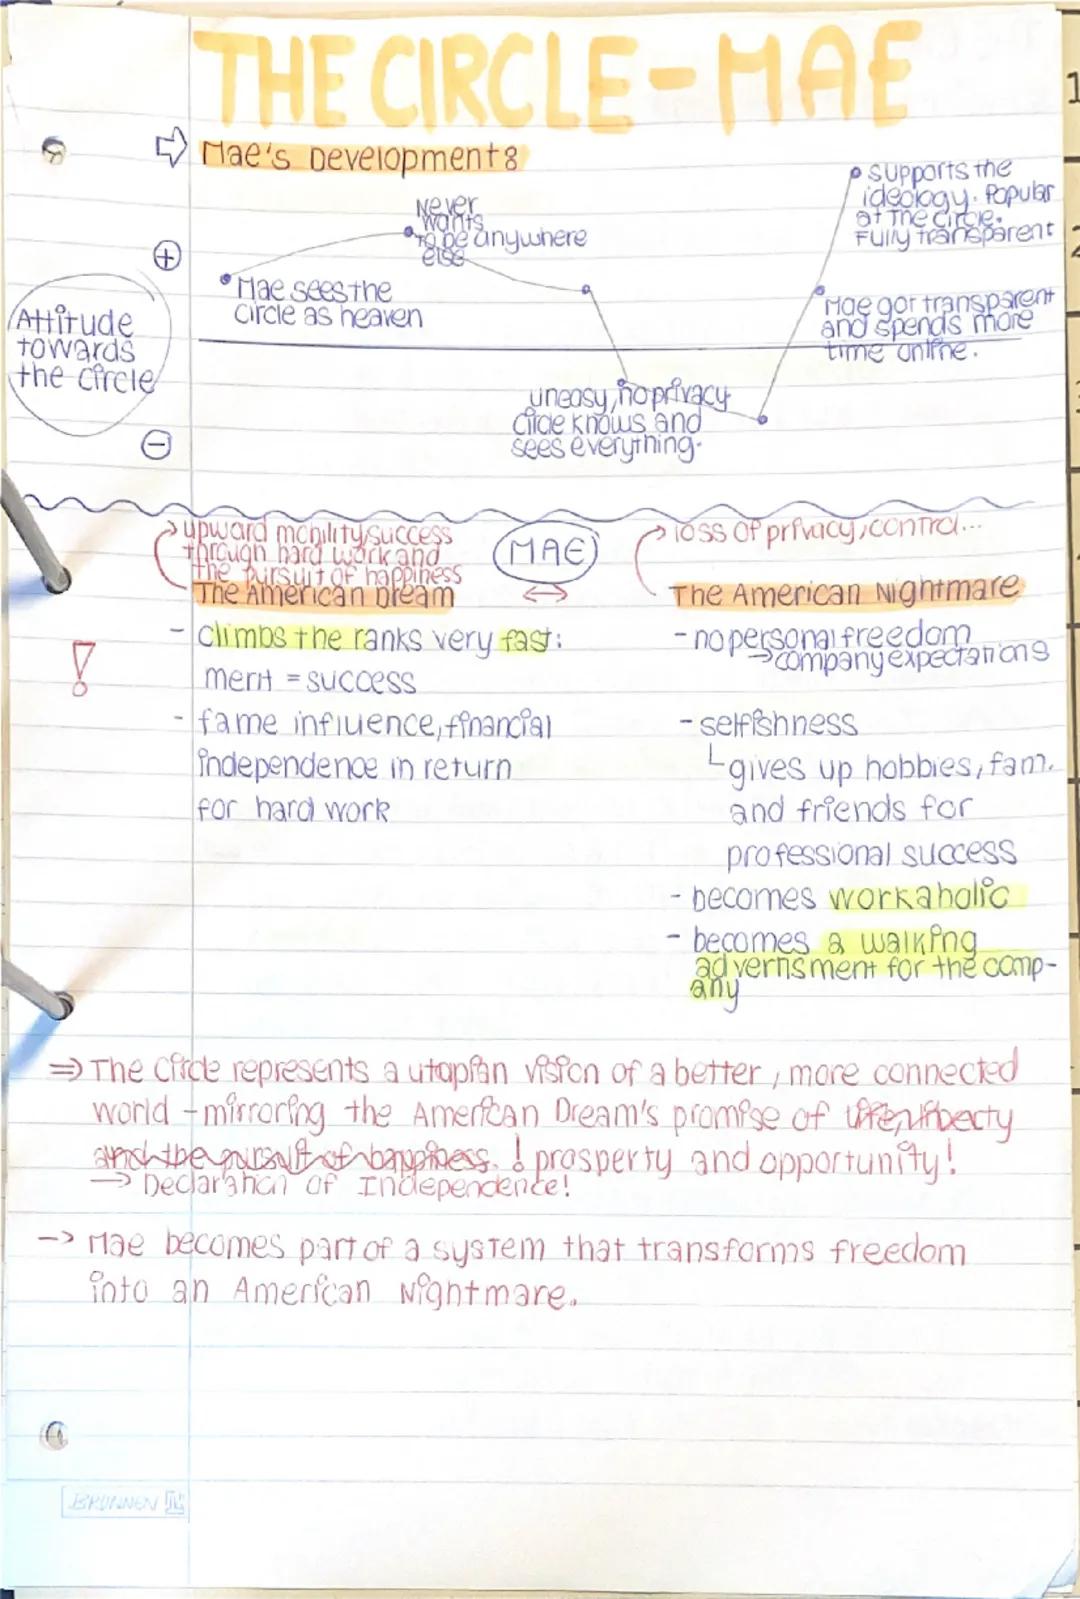 THE CIRCLE - MAE
⇨ Mae's Development:
Never
wants
to be anywhere
else
• supports the
ideology. Popular
at the circle.
Fully transparent
+
• Mae sees the
circle as heaven
Attitude
towards
the circle
Mae got transparent
and spends more
time online.
uneasy, no privacy
circle knows and
sees everything.
−
→ upward mobility, success
through hard work and
the pursuit of happiness
MAE
→ loss of privacy, control...
The American Dream
↔
The American Nightmare
!
- climbs the ranks very fast:
merit = success
- fame influence, financial
independence in return
for hard work
- no personal freedom
→ company expectations
- selfishness
gives up hobbies, fam.
and friends for
professional success
- becomes workaholic
- becomes a walking
advertisment for the comp-
any
⇒ The Circle represents a utopian vision of a better, more connected
world - mirroring the American Dream's promise of life, liberty
and the pursuit of happiness. ! prosperty and opportunity!
→ Declaration of Independence!
-> Mae becomes part of a system that transforms freedom
into an American Nightmare.
BRUNNEN